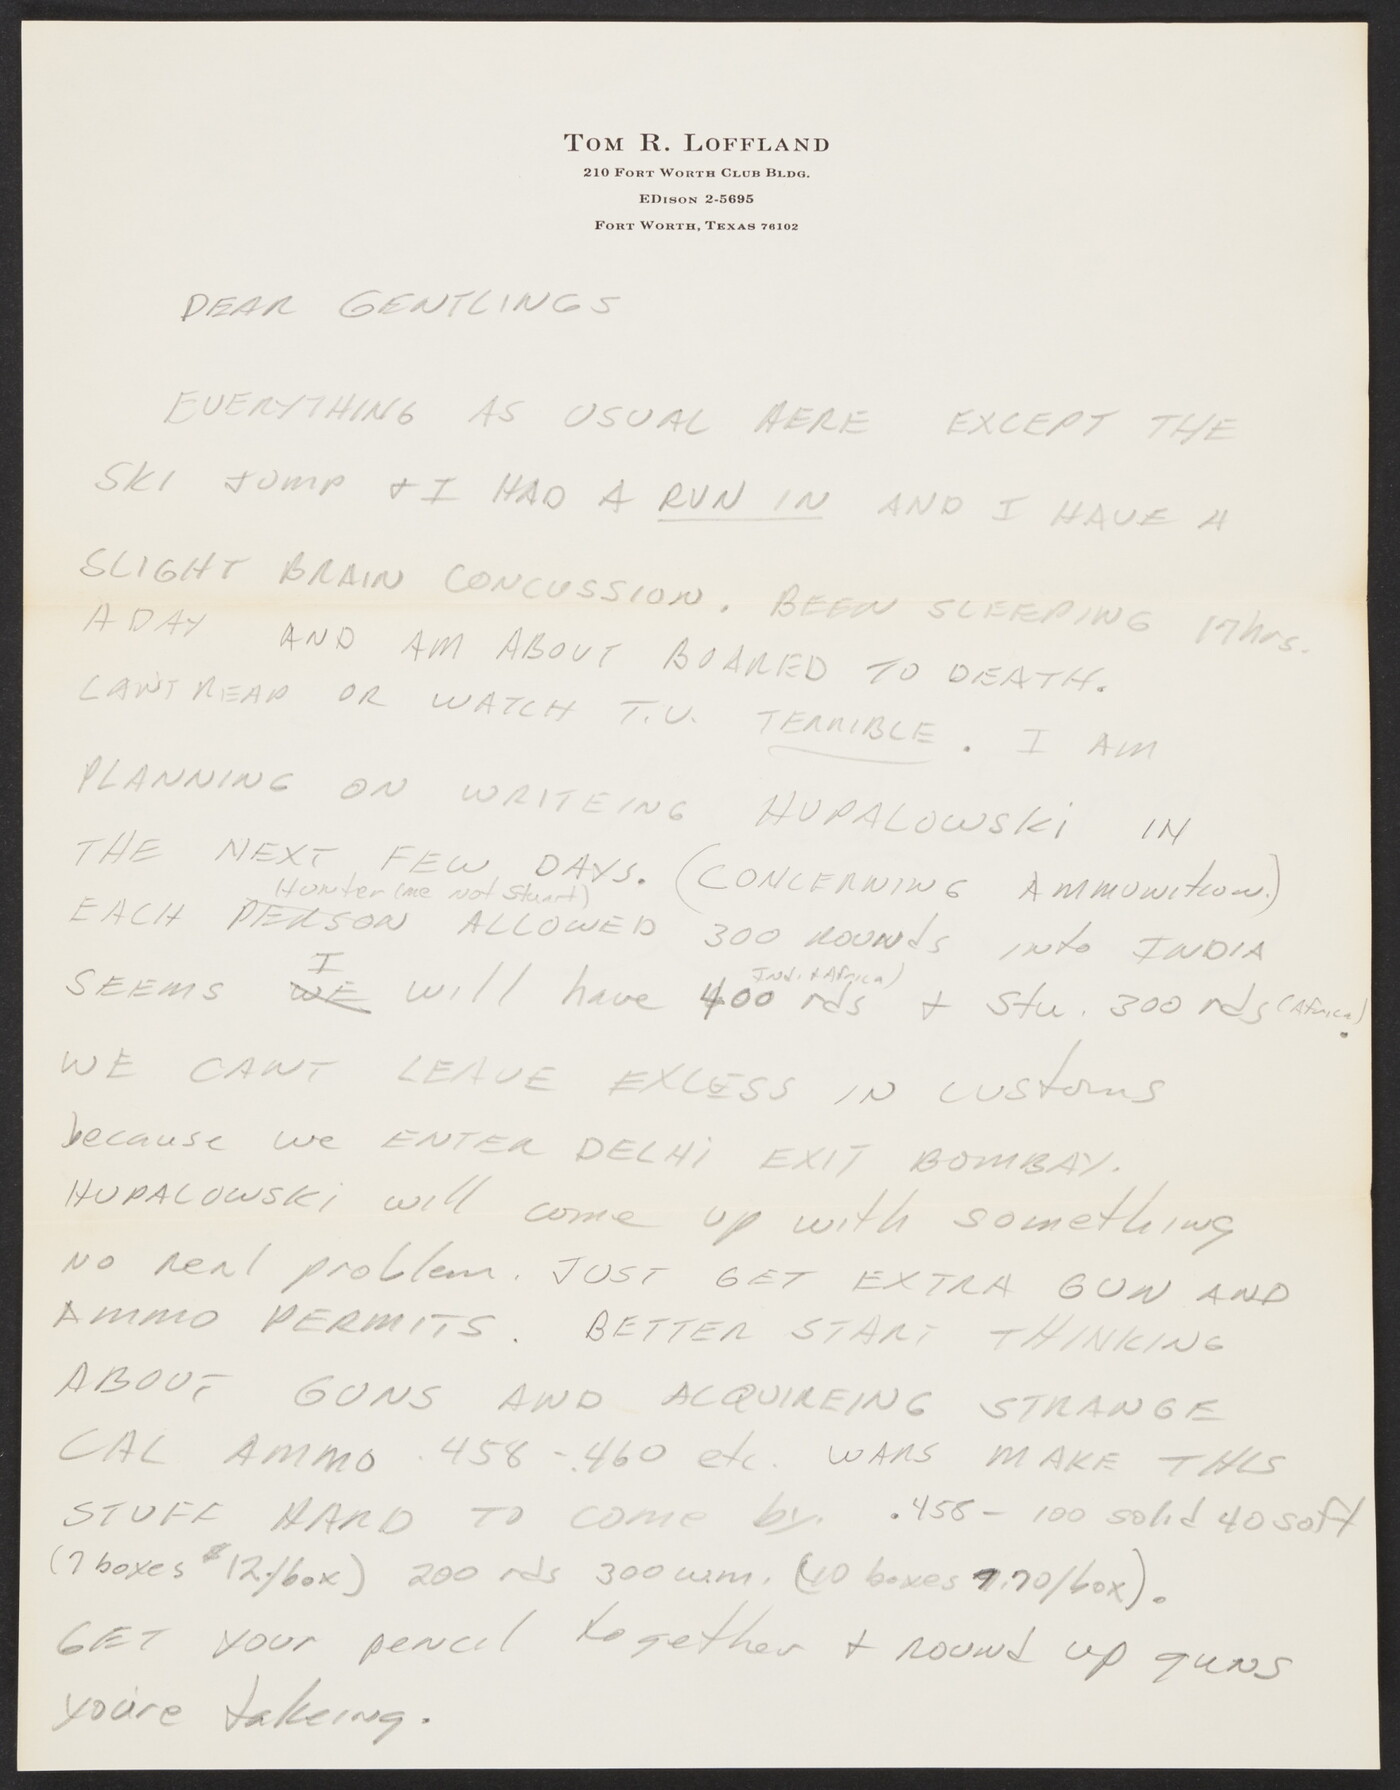 TOM R. LOFFLAND
210 FORT WORTH CLUB BLDG.
EDISON 2-5695
FORT WORTH, TEXAS 76102
DEAR GENTLINGS
EVERYTHING AS USUAL HERE EXCEPT THE
SKI JUMP + I HAD A RUN IN AND I HAVE A
SLIGHT BRAIN CONCUSSION. BEEN SLEEPING 17hrs.
A DAY AND AM ABOUT BOARED TO DEATH.
CANT READ OR WATCH T.V. TERRIBLE. I AM
PLANNING ON WRITEING HUPALOWSKi IN
THE NEXT FEW DAYS. (CONCERNING Ammunition.)
Hunter (me not Stuart)
EACH PERSON ALLOWED 300 ROUNds into INDIA
I Indi + Africa)
SEEMS WE will have 400 rds + Stu. 300 rds (Africa).
WE CANT LEAVE EXCESS IN customs
because we ENTER DELHi EXIT BOMBAY.
HUPALOWSKi will come up with something
NO real problem. JUST GET EXTRA GUN AND
AMMO PERMITS. BETTER START THINKING
ABOUT GUNS AND ACQUIREING STRANGE
CAL AMMO .458 - .460 etc. WARS MAKE THIS
STUFF HARD TO come by. .458 - 100 solid 40 soft
(7 boxes $12./box) 200 rds 300 w.m. (10 boxes 7.70/box).
GET your pencil together + round up guns
you're takeing.